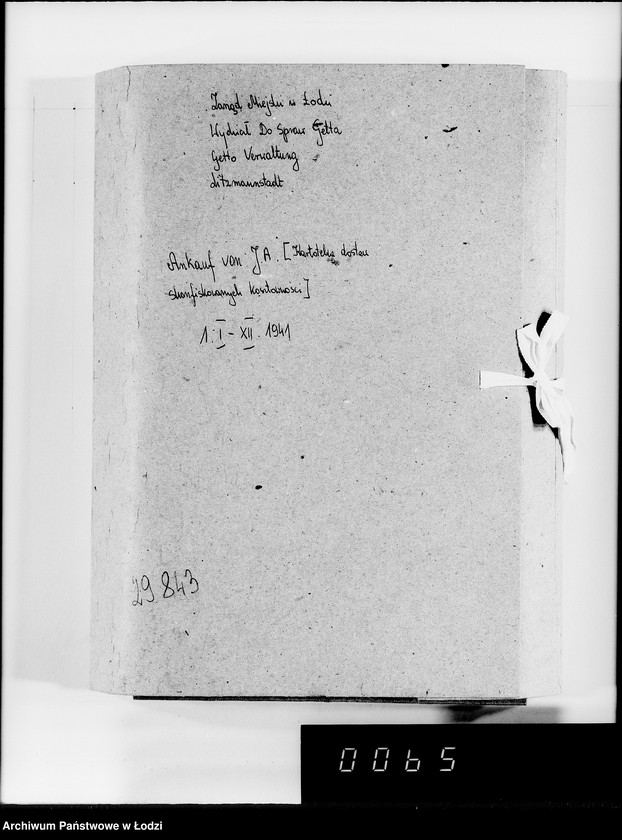 Zarząd Miejski w Łodzi
Wydział Do Spraw Getta
Getto Verwaltung
Litzmannstadt
Ankauf von J.A. [Kartoteka dostaw
skonfiskowanych kosztowności]
1. I - XII. 1941
29843
0065
Archiwum Państwowe w Łodzi